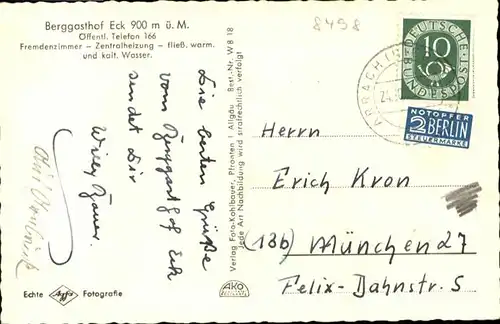 Berggasthof Eck 900 m ü. M.
Öffentl. Telefon 166
Fremdenzimmer – Zentralheizung – fließ. warm.
und kalt. Wasser.
8498
Die besten Grüße
vom Berggasthof Eck
sendet Dir
Willy Bauer.
Verlag Foto-Kohlbauer, Pfronten i. Allgäu Best.-Nr. W 8 18
Jede Art Nachbildung wird strafrechtlich verfolgt
AKO
Echte Agfa Fotografie
ARRACH
DEUTSCHE BUNDESPOST
10
NOTOPFER
2 BERLIN
STEUERMARKE
Herrn
Erich Kron
(13b) München 27
Felix-Dahnstr. 5